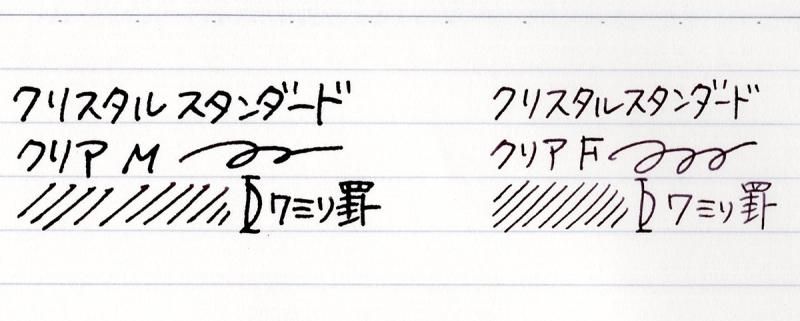 クリスタルスタンダード
クリア M
7ミリ罫
クリスタルスタンダード
クリア F
7ミリ罫